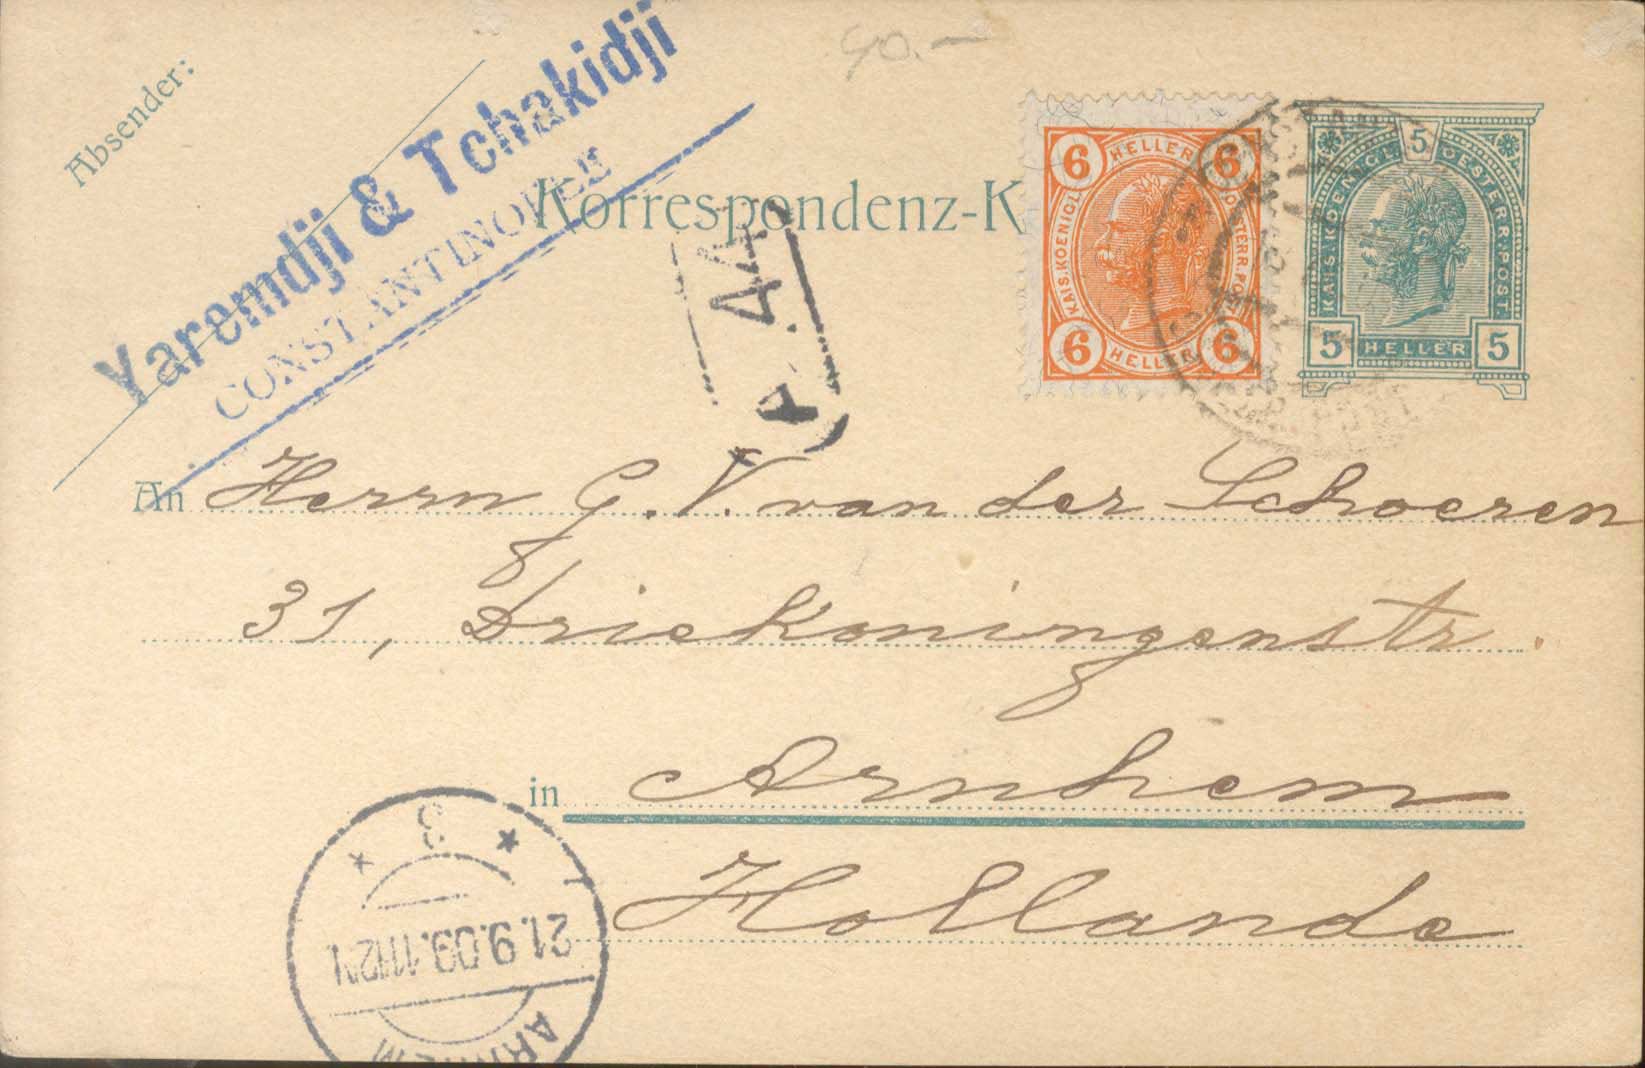 40.-
Absender:
Yaremdji & Tchakidji
CONSTANTINOPLE
Korrespondenz-K
A. 44
6 HELLER 6
KAIS. KOENIGL.
POST
6 HELLER 6
5
KAIS. KOENIGL. OESTERR. POST.
5 HELLER 5
An Herrn G. V. van der Schoeren
31, Driekoningenstr.
in Arnhem
Hollande
3
21.9.09.11-12
ARNHEM